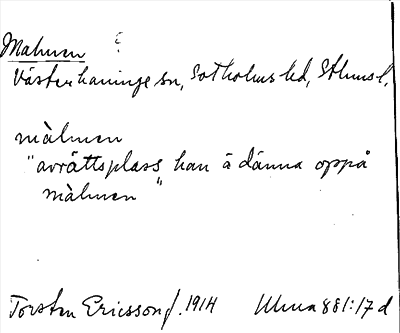 Malmen ?
Västerhaninge sn, Sotholms hd, Sthms l.
màlmen
"avrättsplass han ä dänna oppå
màlmen"
Torsten Ericsson f. 1914 Ulma 881:17 d